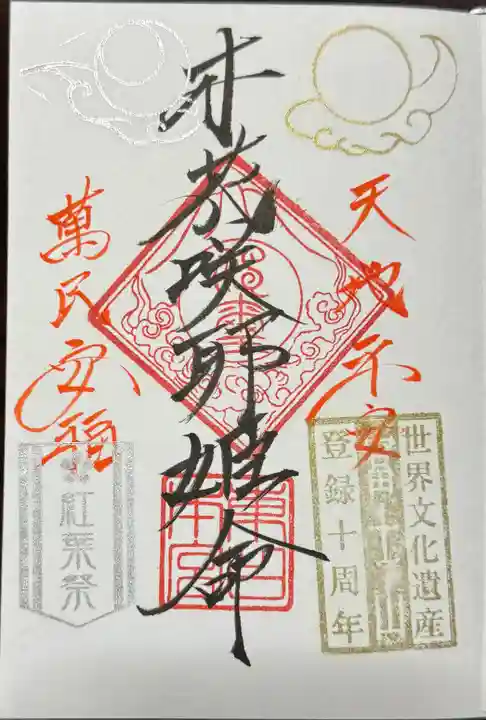 天地平安
木花咲耶姫命
萬民安福
世界文化遺産
登録十周年
紅葉祭